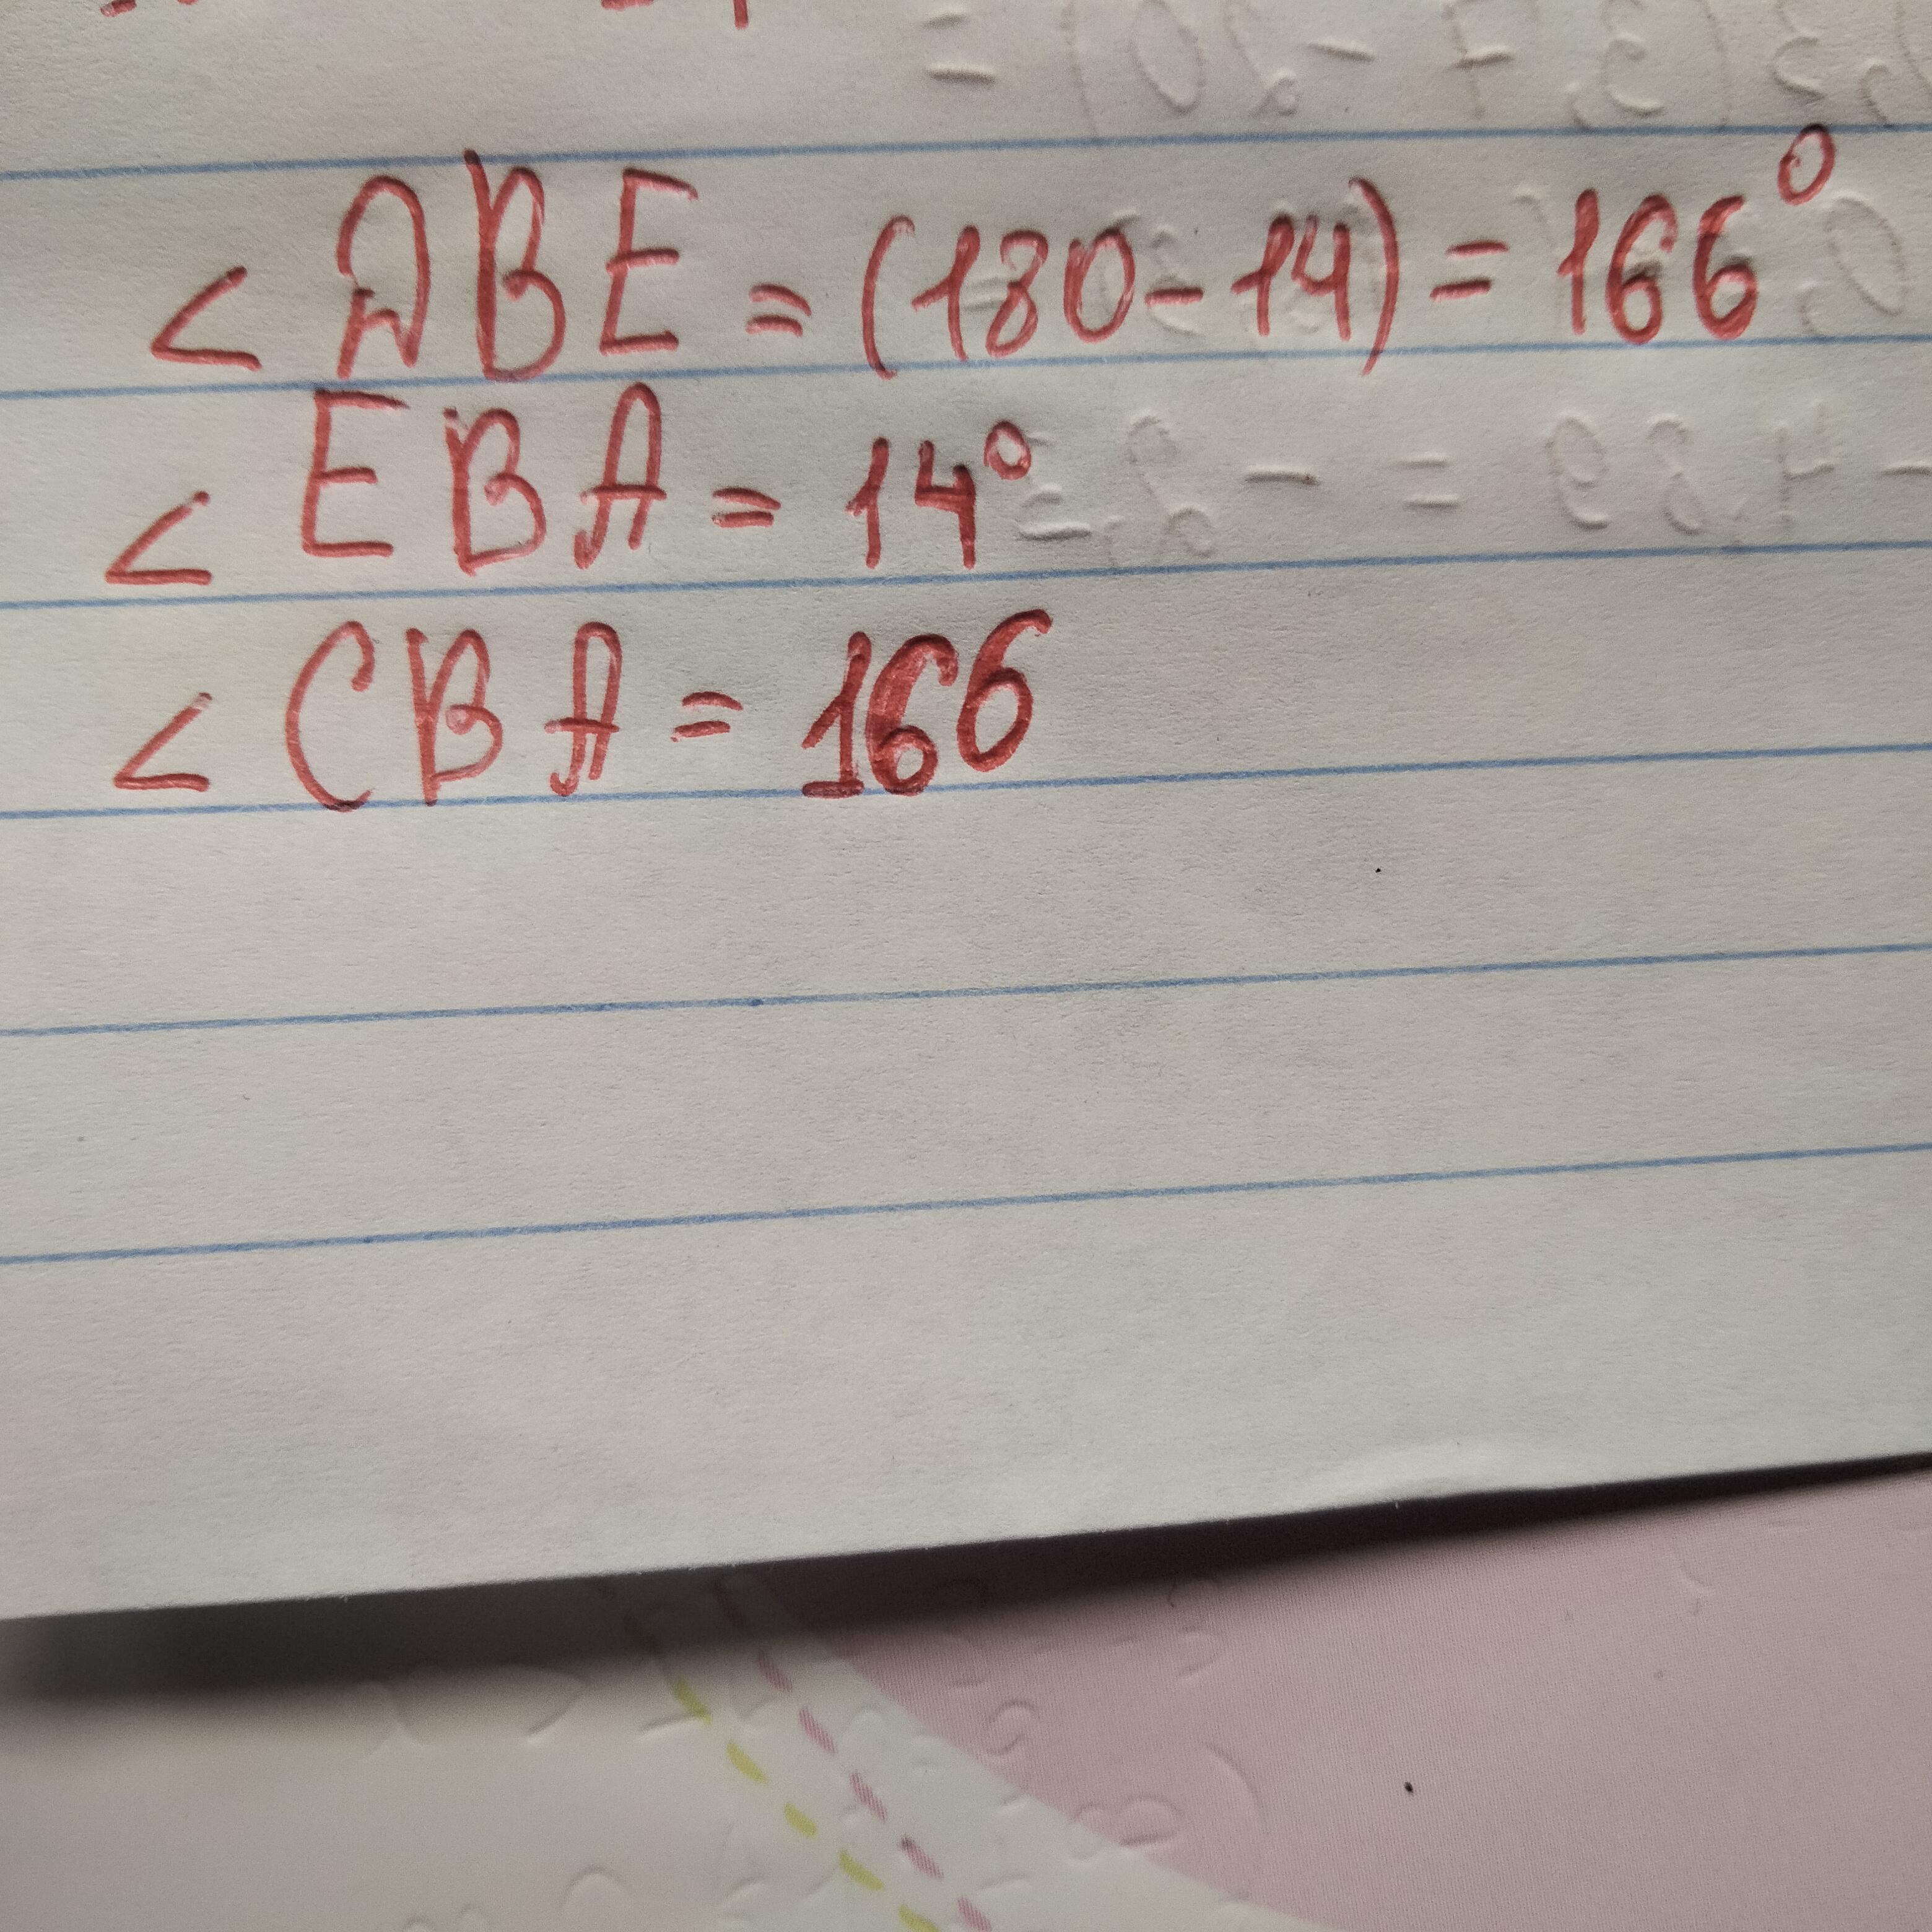 < DBE = (180 - 14) = 166°
< EBA = 14°
< CBA = 166